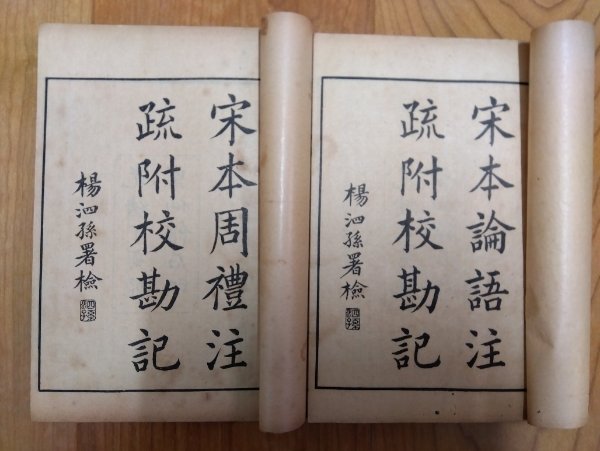 宋本周禮注
疏附校勘記
楊泗孫署檢
宋本論語注
疏附校勘記
楊泗孫署檢